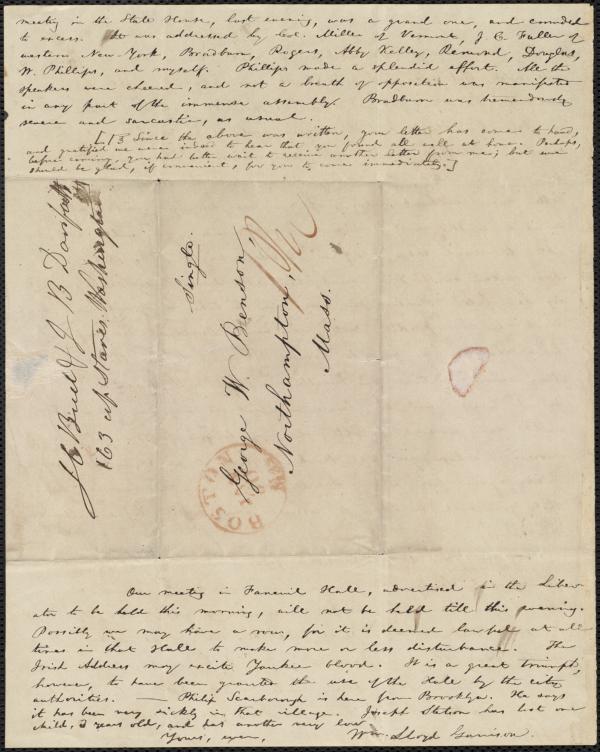 meeting in the State House, last evening, was a grand one, and crowded
to excess. It was addressed by Col. Miller of Vermont, J. C. Fuller of
western New-York, Bradburn, Rogers, Abby Kelley, Remond, Douglas,
W. Phillips, and myself. Phillips made a splendid effort. All the
speakers were cheered, and not a breath of opposition was manifested
in any part of the immense assembly. Bradburn was tremendously
severe and sarcastic, as usual.
Since the above was written, your letter has come to hand,
and gratified we were indeed to hear that you found all well at home. Perhaps,
before coming, you had better wait to receive another letter from me; but we
should be glad, if convenient, for you to come immediately.]
J B Danforth
163 Washington
Single.
George W. Benson,
Northampton,
Mass.
BOSTON
Our meeting in Faneuil Hall, advertised in the Liber-
ator to be held this morning, will not be held till this evening.
Possibly we may have a row, for it is deemed lawful at all
times in that Hall to make more or less disturbance. The
Irish Address may excite Yankee blood. It is a great triumph,
however, to have been granted the use of the Hall by the city
authorities. — Philip Scarborough is here from Brooklyn. He says
it has been very sickly in that village. Joseph has lost one
child, years old, and has another very low.
Yours, ever, Wm. Lloyd Garrison.